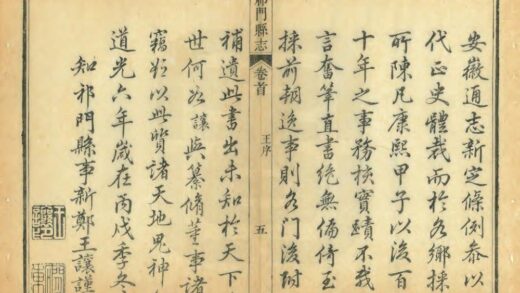 安徽通志新定條例參以
代正史體裁而於各鄉採
所陳凡康熙甲子以後百
十年之事務核實蹟不
言奮筆直書絶無偏倚至
採前朝逸事則各門後附
祁門縣志
卷首
王序
五
補遺此書出未知於天下
世何如讓與纂脩董事諸
竊以此質諸天地鬼神
道光六年歲在丙戌季冬
知祁門縣事新鄭王讓謹